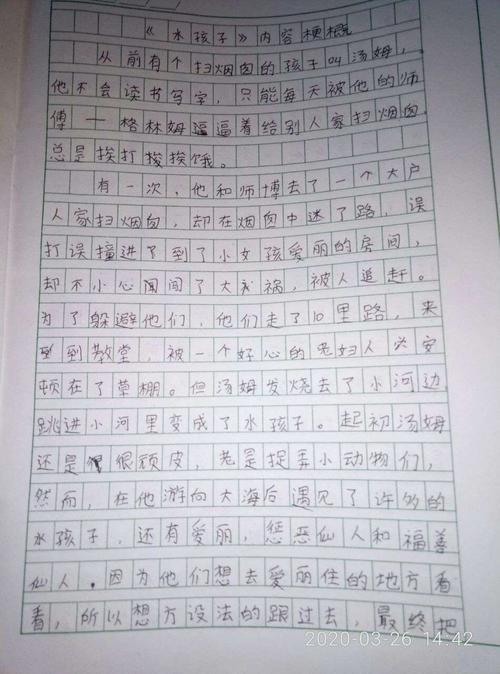 《水孩子》内容梗概
从前有个扫烟囱的孩子叫汤姆，
他不会读书写字，只能每天被他的师
傅——格林姆逼逼着给别人家扫烟囱，
总是挨打挨饿。
有一次，他和师博去了一个大户
人家扫烟囱，却在烟囱中迷了路，误
打误撞进了到了小女孩爱丽的房间，
却不小心闻闯了大祸，被人追赶。
为了躲避他们，他们走了10里路，来
到到教堂，被一个好心的老妇人安
顿在了草棚。但汤姆发烧去了小河边
跳进小河里变成了水孩子。起初汤姆
还是很很顽皮，老是捉弄小动物们，
然而，在他游向大海后遇见了许多的
水孩子，还有爱丽，惩恶仙人和福善
仙人。因为他们想去爱丽住的地方看
看，所以想方设法的跟过去，最终把
2020-03-26 14:42